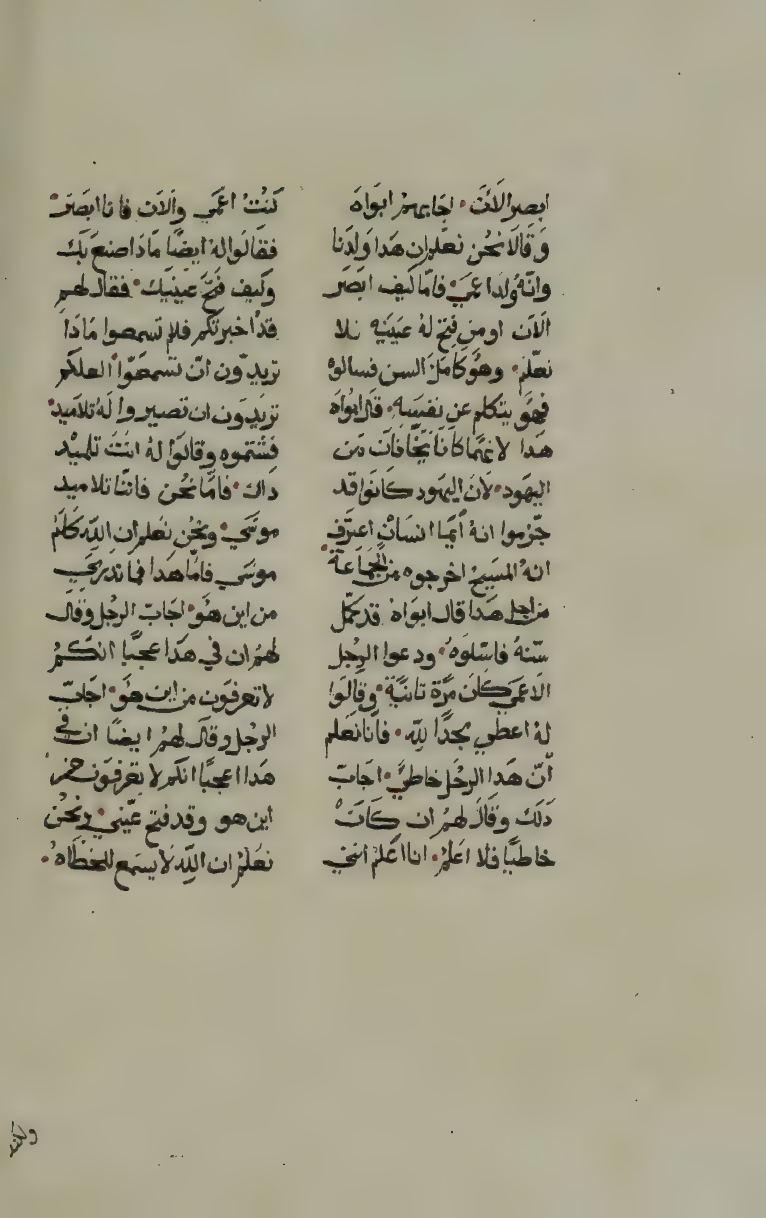 ابصر الان. اجابهم ابواه
وقالا نحن نعلم ان هدا ولدنا
وانه ولد اعمي. فاما كيف ابصر
الان او من فتح له عينيه فلا
نعلم. وهو كامل السن فسالوه
فهو يتكلم عن نفسه. قال ابواه
هدا لانهما كانا يخافان من
اليهود. لان اليهود كانوا قد
جزموا انه ايما انسان اعترف
انه المسيح اخرجوه من الجماعة.
من اجل هدا قال ابواه قد كمل
سنه فاسلوه. ودعوا الرجل
الاعمي كان مرة تانية. وقالوا
له اعطي مجدا لله. فاننا نعلم
ان هدا الرجل خاطي. اجاب
دلك وقال لهم ان كان
خاطيا فلا اعلم. انا اعلم انني
كنت اعمي والان فانا ابصر.
فقالوا له ايضا مادا صنع بك
وكيف فتح عينيك. فقال لهم
قد اخبرتكم فلم تسمعوا مادا
تريدون ان تسمعوا العلكم
تريدون ان تصيروا له تلاميد.
فشتموه وقالوا له انت تلميد
داك. فاما نحن فاننا تلاميد
موسي. ونحن نعلم ان الله كلم
موسي فاما هدا فما ندري
من اين هو. اجاب الرجل وقال
لهم ان في هدا عجبا انكم
لا تعرفون من اين هو. اجاب
الرجل وقال لهم ايضا ان في
هدا اعجبا انكم لا تعرفون من
اين هو وقد فتح عيني. ونحن
نعلم ان الله لا يسمع للخطاه.
ولكنه